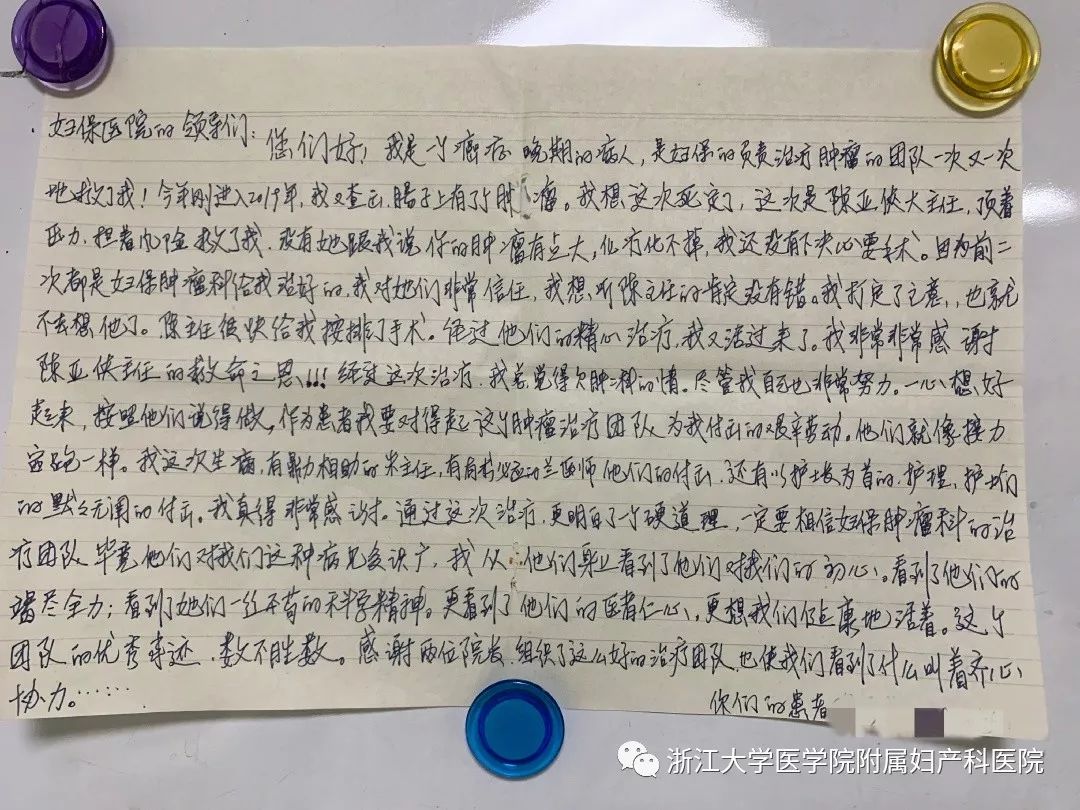 妇保医院的领导们：
您们好！我是一个癌症晚期的病人，是妇保的负责治疗肿瘤的团队一次又一次
地救了我！今年刚进入2019年，我又查出，肠子上有了个肿瘤。我想这次死定了，这次是陈亚侠大主任，顶着
压力，担着风险救了我，没有她跟我说你的肿瘤有点大，化疗化不掉，我还没有下决心要手术。因为前二
次都是妇保肿瘤科给我治好的，我对她们非常信任，我想听陈主任的肯定没有错。我打定了主意，也就
不去想他了。陈主任很快给我按排了手术。经过他们的精心治疗，我又活过来了。我非常非常感谢
陈亚侠主任的救命之恩！！！经过这次治疗，我总觉得欠肿瘤科的情。尽管我自己也非常努力。一心想好
起来，按照他们说得做。作为患者我要对得起这个肿瘤治疗团队为我付出的艰辛劳动。他们就像接力
赛跑一样。我这次生病，有鼎力相助的朱主任，有有求必应的兰医师他们的付出，还有以护士长为首的，护理，护士们
的默默无闻的付出。我真得非常感谢。通过这次治疗，更明白了一个硬道理，一定要相信妇保肿瘤科的治
疗团队，毕竟他们对我们这种病见多识广，我从他们身上看到了他们对我们的初心。看到了他们的
竭尽全力；看到了她们一丝不苟的科学精神。更看到了他们的医者仁心，更想我们健康地活着。这个
团队的优秀事迹，数不胜数。感谢两位院长，组织了这么好的治疗团队，也使我们看到了什么叫着齐心
协力。……
你们的患者
浙江大学医学院附属妇产科医院